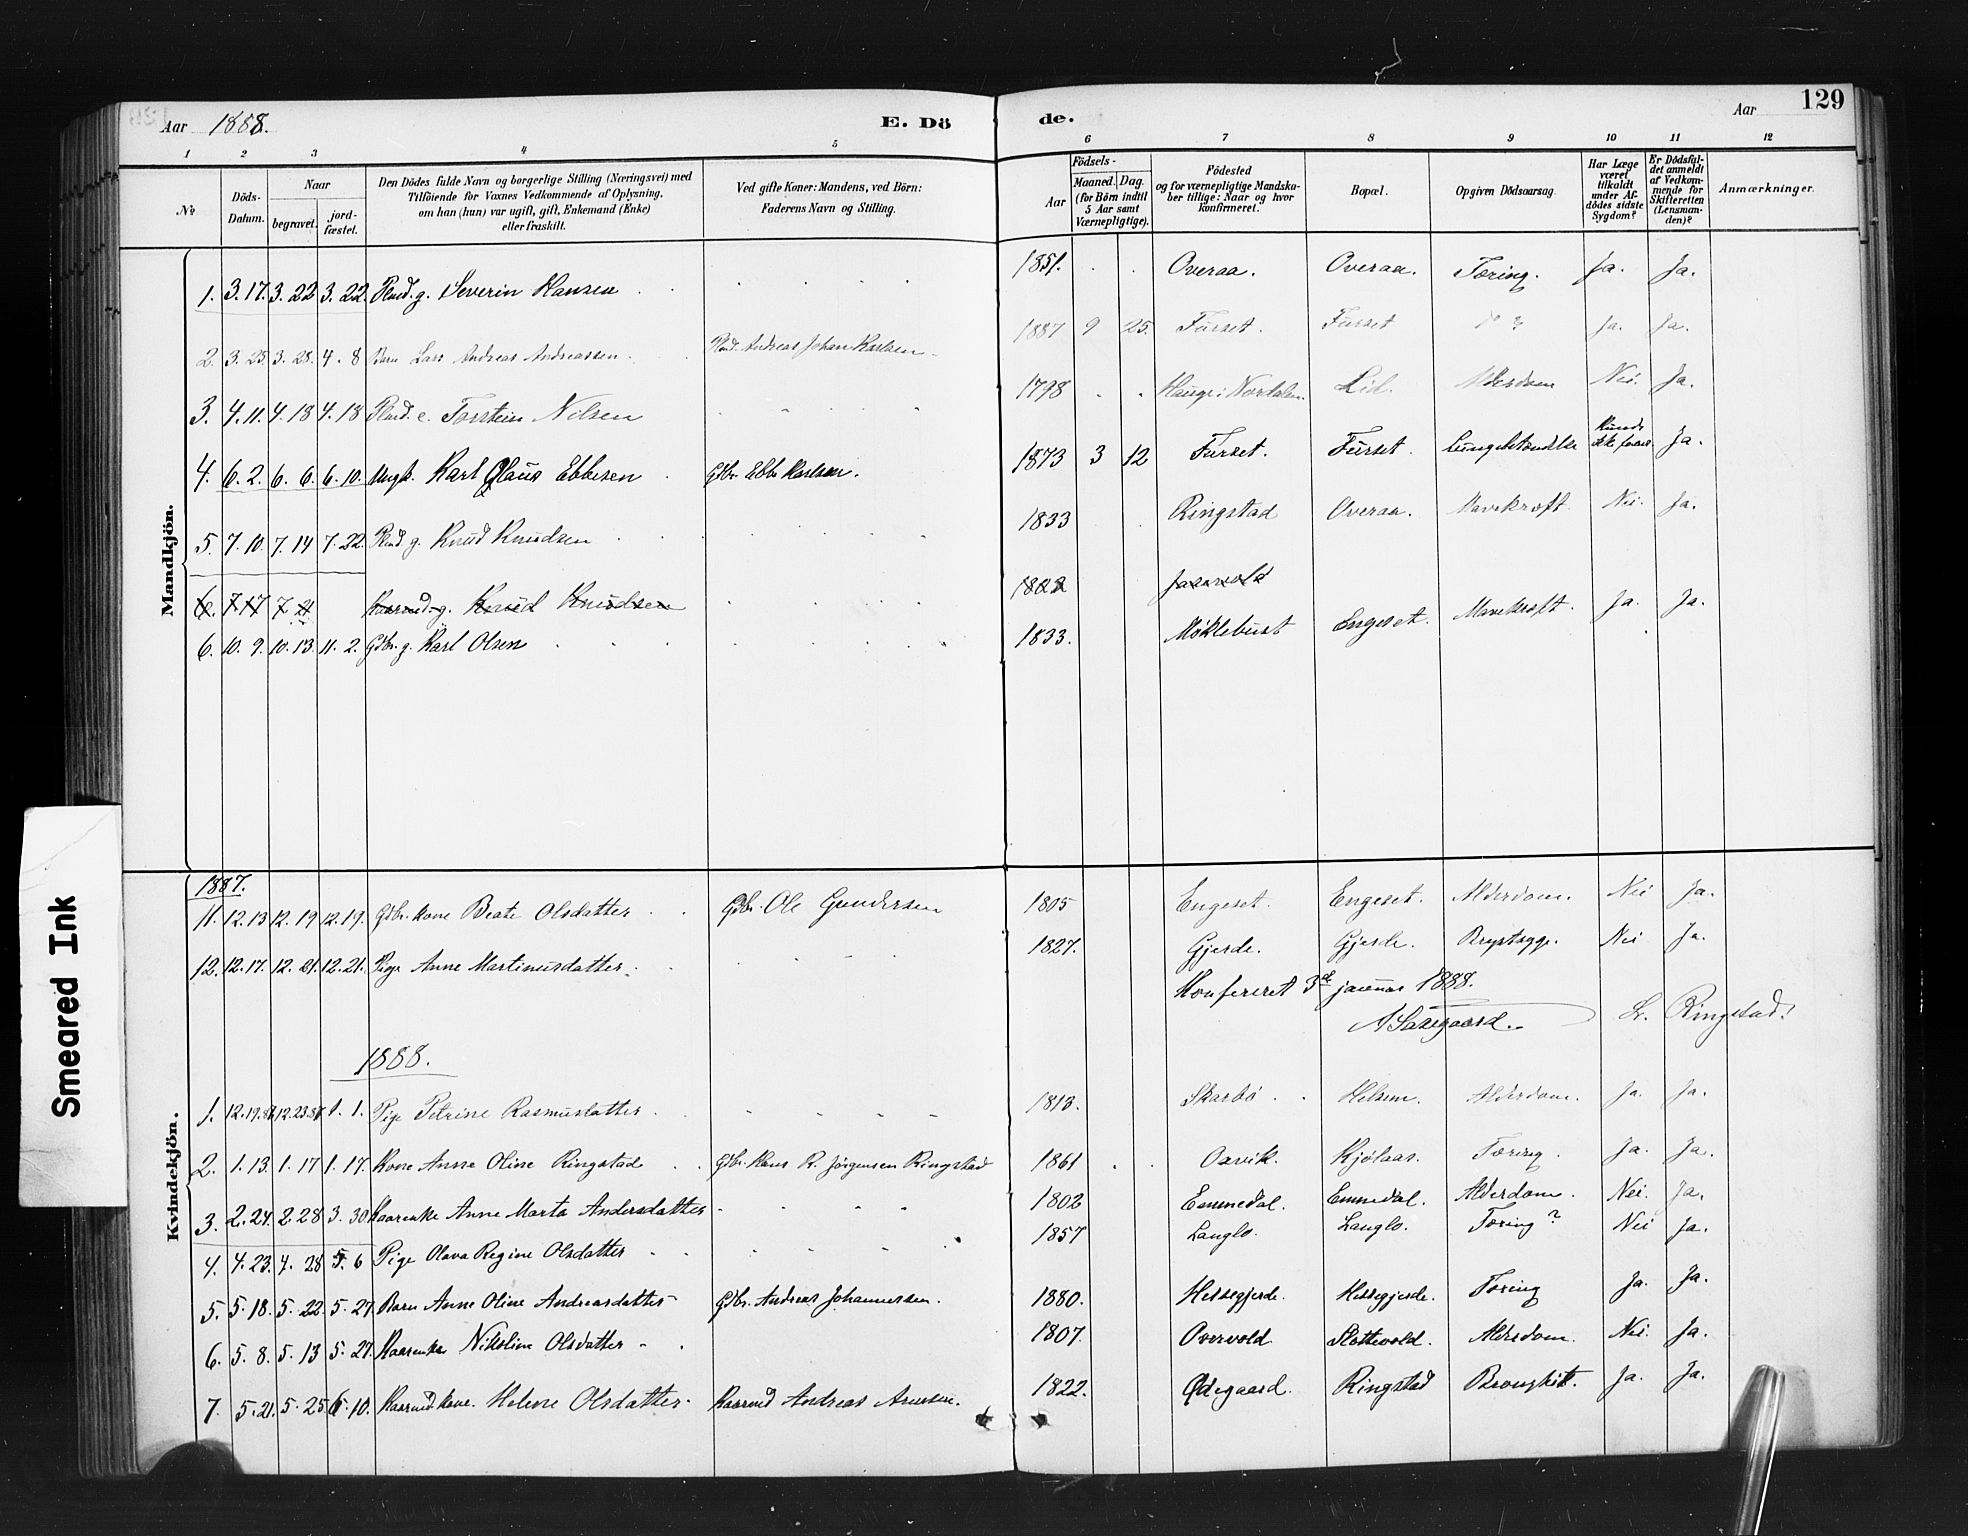 Aar 1888. E. Dö de. Aar 129
1 2 3 4 5 6 7 8 9 10 11 12
No
Döds-Datum.
Naar
begravet.
jord-fæstet.
Den Dödes fulde Navn og borgerlige Stilling (Næringsvei) med
Tilföiende for Voxnes Vedkommende af Oplysning,
om han (hun) var ugift, gift, Enkemand (Enke)
eller fraskilt.
Ved gifte Koner: Mandens, ved Börn:
Faderens Navn og Stilling.
Födsels-
Aar
Maaned. Dag.
(for Börn indtil
5 Aar samt
Værnepligtige).
Födested
og for værnepligtige Mandska-
ber tillige: Naar og hvor
konfirmeret.
Bopæl.
Opgiven Dödsaarsag.
Har Læge
været
tilkaldt
under Af-
dödes sidste
Sygdom?
Er Dödsfal-
det anmeldt
af Vedkom-
mende for
Skifteretten
(Lensman-
den)?
Anmærkninger.
Mandkjön.
1. 3. 17. 3. 22 3. 22. Plud. g. Severin Hansen 1851. Overaa. Overaa. Tæring. Ja. Ja.
2. 3. 25. 3. 28. 4. 8 Barn Lars Andreas Andreassen Plud. Andreas Johan Karlsen 1887 9 25. Furset. Furset do ? Ja. Ja.
3. 4. 11. 4. 18 4. 18 Plud. e. Torstein Nilsen 1798 Hauge i Nordalen. Lid. Alderdom Nei. Ja.
4. 6. 2. 6. 6. 6. 10. Ungk. Karl Olaus Ebbesen Gdbr. Ebbe Karlsen. 1873 3 12 Furset. Furset. Lungebetændelse Kunde ikke faaes. Ja.
5. 7. 10. 7. 14 7. 22. Plud g. Knud Knudsen 1833 Ringstad Overaa. Mavekræft. Nei. Ja.
6. 7. 17 7. 21 Kaarmd. g. Knud Knudsen 1822
6. 10. 9. 10. 13 11. 2. Gdbr. g. Karl Olsen 1833. Møklebust Engeset. Mavekræft. Ja. Ja.
Kvindekjön.
1887.
11. 12. 13 12. 19 12. 19. Gdbr. kone Beate Olsdatter Gdbr. Ole Gundersen 1805 Engeset. Engeset. Alderdom. Nei Ja.
12. 12. 17. 12. 21. 12. 21. Pige Anne Martinusdatter 1827. Gjerde. Gjerde. Brystsyge. Nei Ja.
Konfereret 3de januar 1888.
A Saxegaard. Lr. Ringstad.
1888.
1. 12. 19. 87 12. 23. 87 1. 1. Pige Petrine Rasmusdatter 1813. Skarbö Helsem. Alderdom. Ja. Ja.
2. 1. 13. 1. 17 1. 17. Kone Anne Oline Ringstad Gdbr. Hans R. Jörgensen Ringstad 1861 Oxvik. Kjölaas. Tæring. Ja. Ja.
3. 2. 24. 2. 28 3. 30. Kaarenke Anne Marta Andersdatter 1802 Emmedal. Emmedal. Alderdom. Nei. Ja.
4. 4. 23. 4. 28 5. 6 Pige Olava Regine Olsdatter 1857 Langlo. Langlo. Tæring ? Nei Ja.
5. 5. 18. 5. 22 5. 27 Barn Anne Oline Andreasdatter Gdbr. Andreas Johannessen. 1880. Hessegjerde. Hessegjerde. Tæring Ja. Ja.
6. 5. 8. 5. 13 5. 27. Kaarenke Nikoline Olsdatter 1807. Overvold Slottevold. Alderdom. Nei. Ja.
7. 5. 21. 5. 25. 6. 10. Kaarmd kone. Helene Olsdatter. Kaarmd Andreas Arnesen. 1822. Ødegaard. Ringstad Bronshit. Ja. Ja.
Smeared Ink